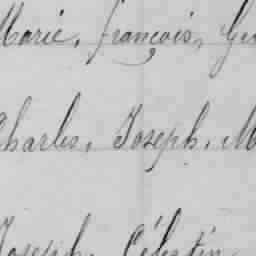 Marie, françois,
Charles, Joseph,
Joseph, Célestin